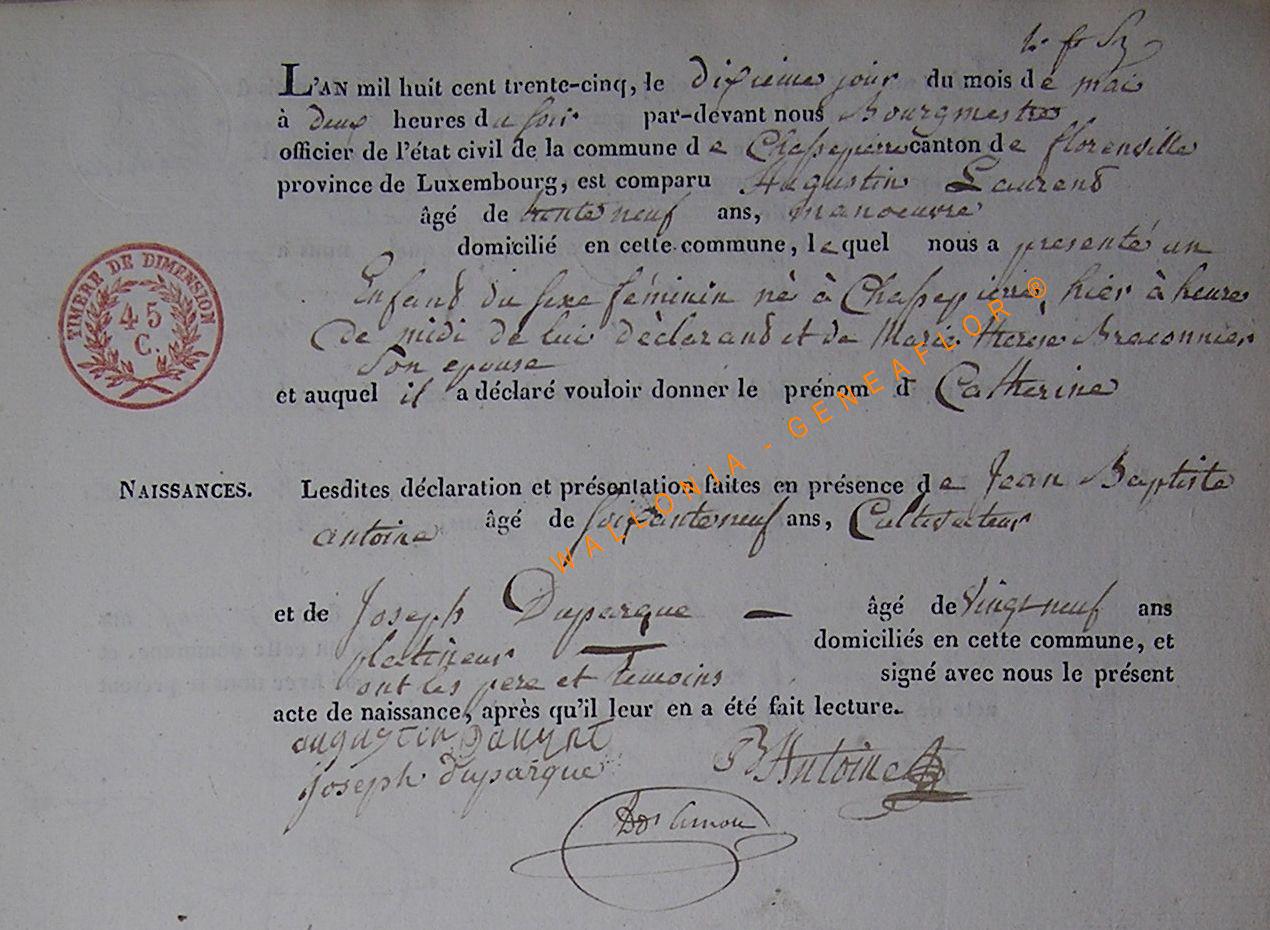 L'AN mil huit cent trente-cinq, le dixieme jour du mois de mai
à deux heures du soir par-devant nous Bourgmestre
officier de l'état civil de la commune de Chassepierre canton de florenville
province de Luxembourg, est comparu Augustin Laurend
âgé de trente neuf ans, manoeuvre
domicilié en cette commune, lequel nous a presenté un
Enfand du sexe féminin nè à Chassepierre hier à heure
de midi de lui dèclarand et de Marie therèse Braconnier
son epouse
et auquel il a déclaré vouloir donner le prénom d Catherine
TIMBRE DE DIMENSION
45
C.
NAISSANCES. Lesdites déclaration et présentation faites en présence de Jean Baptiste
antoine âgé de soixante neuf ans, Cultivateur
et de Joseph Duparque âgé de vingt neuf ans
platineur domiciliés en cette commune, et
ont les pere et temoins signé avec nous le présent
acte de naissance, après qu'il leur en a été fait lecture.
augustin
joseph duparque JB Antoine
WALLONIA - GENEAFLOR ®